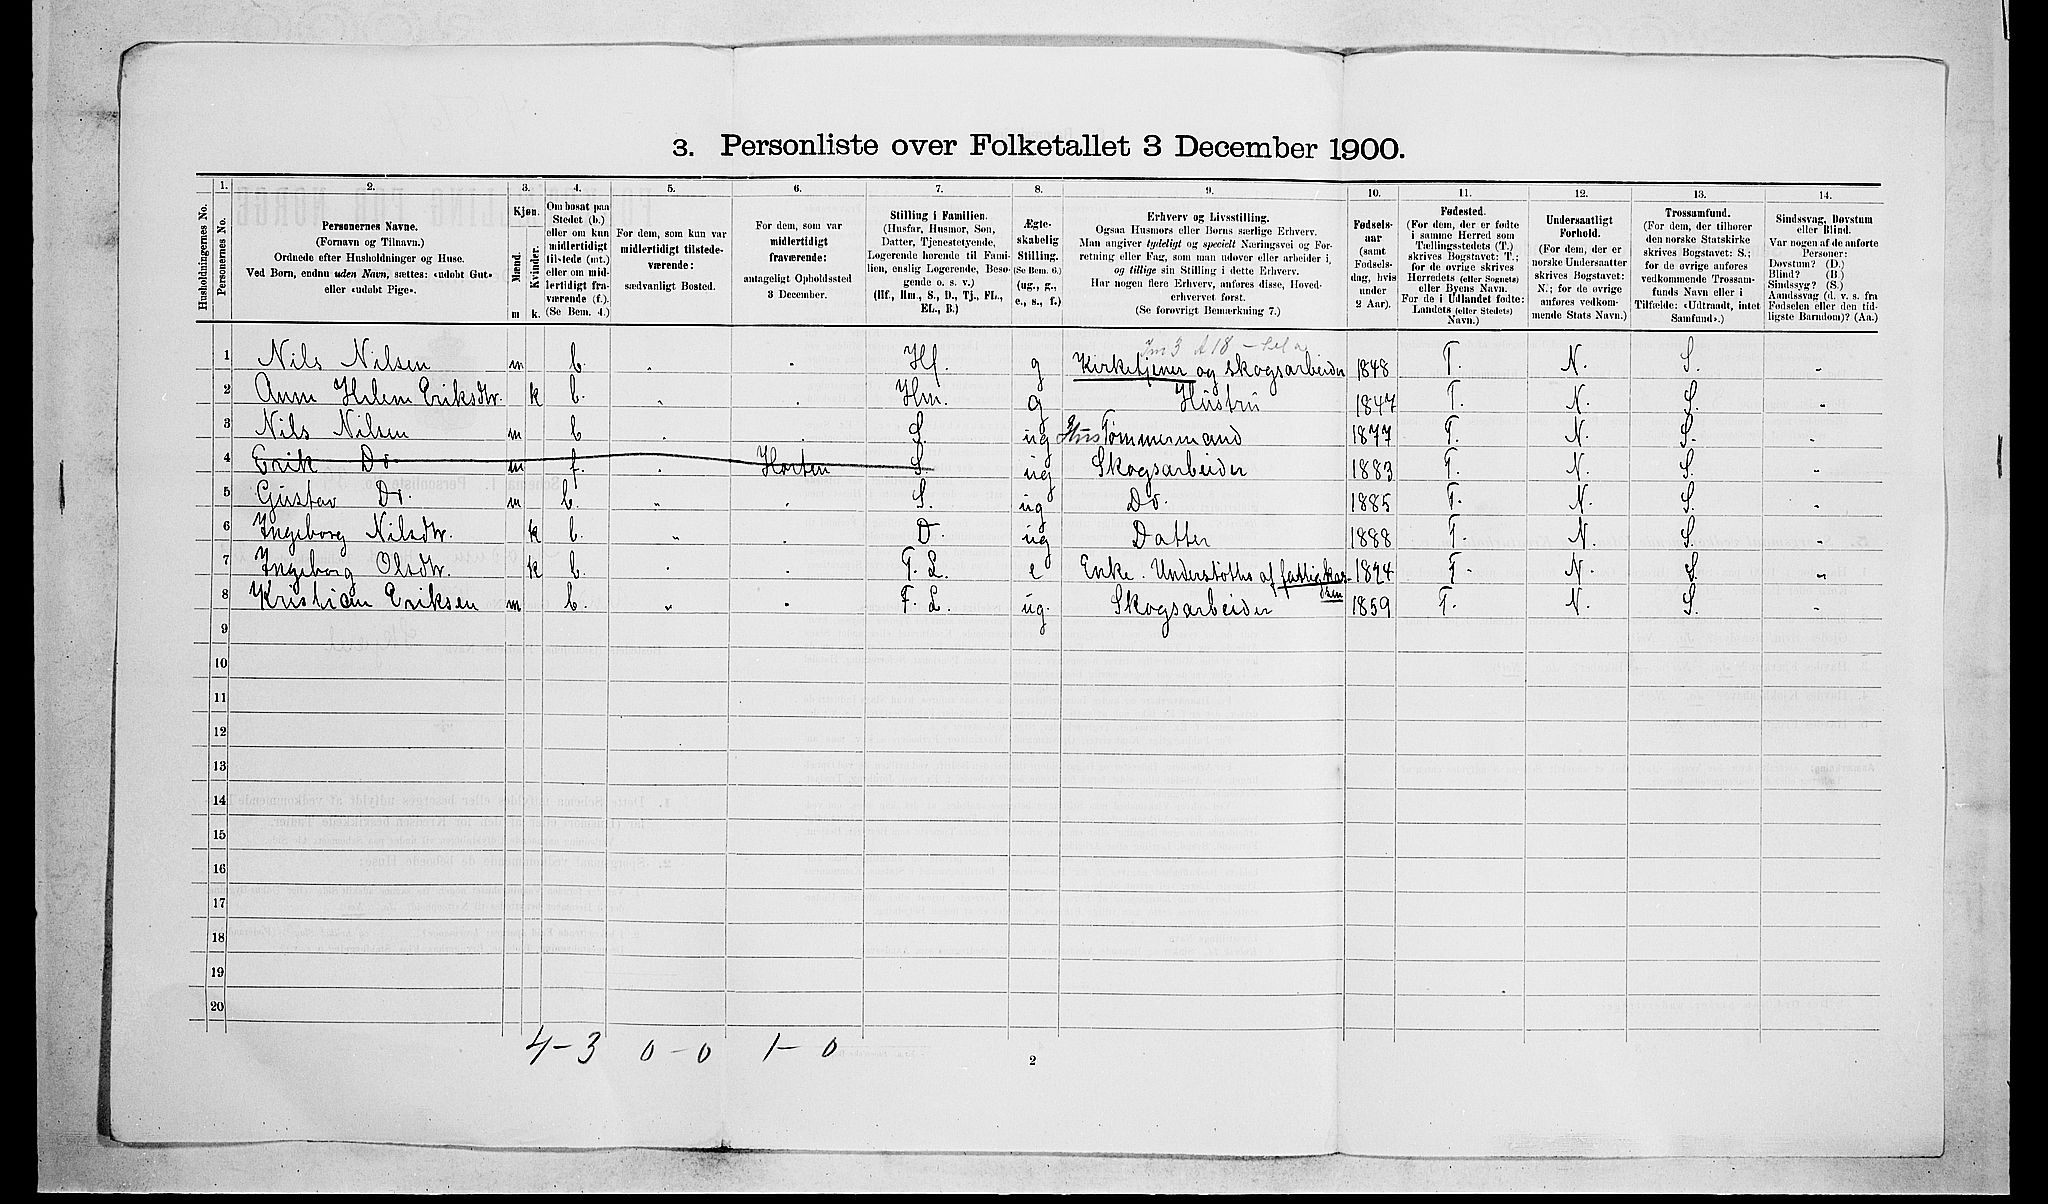 3. Personliste over Folketallet 3 December 1900.
Husholdningernes No.
1.
Personernes No.
2.
Personernes Navne.
(Fornavn og Tilnavn.)
Ordnede efter Husholdninger og Huse.
Ved Børn, endnu uden Navn, sættes: «udøbt Gut»
eller «udøbt Pige».
3.
Kjøn.
Mænd.
Kvinder.
m k.
4.
Om bosat paa
Stedet (b.)
eller om kun
midlertidigt
tilstede (mt.)
eller om mid-
lertidigt fra-
værende (f.).
(Se Bem. 4.)
5.
For dem, som kun var
midlertidigt tilstede-
værende:
sædvanligt Bosted.
6.
For dem, som var
midlertidigt
fraværende:
antageligt Opholdssted
3 December.
7.
Stilling i Familien.
(Husfar, Husmor, Søn,
Datter, Tjenestetyende,
Logerende hørende til Fami-
lien, enslig Logerende, Besø-
gende o. s. v.)
(Hf., Hm., S., D., Tj., FL.,
EL., B.)
8.
Ægte-
skabelig
Stilling.
(Se Bem. 6.)
(ug., g.,
e., s., f.)
9.
Erhverv og Livsstilling.
Ogsaa Husmors eller Børns særlige Erhverv.
Man angiver tydeligt og specielt Næringsvei og For-
retning eller Fag, som man udøver eller arbeider i,
og tillige sin Stilling i dette Erhverv.
Har nogen flere Erhverv, anføres disse, Hoved-
erhvervet først.
(Se forøvrigt Bemærkning 7.)
10.
Fødsels-
aar
(samt
Fødsels-
dag, hvis
under
2 Aar).
11.
Fødested.
(For dem, der er fødte
i samme Herred som
Tællingsstedets (T.)
skrives Bogstavet: T.;
for de øvrige skrives
Herredets (eller Sognets)
eller Byens Navn.
For de i Udlandet fødte:
Landets (eller Stedets)
Navn.)
12.
Undersaatligt
Forhold.
(For dem, der er
norske Undersaatter
skrives Bogstavet:
N.; for de øvrige
anføres vedkom-
mende Stats Navn.)
13.
Trossamfund.
(For dem, der tilhører
den norske Statskirke
skrives Bogstavet: S.;
for de øvrige anføres
vedkommende Trossam-
funds Navn eller i
Tilfælde: «Udtraadt, intet
Samfund».)
14.
Sindssvag, Døvstum
eller Blind.
Var nogen af de anførte
Personer:
Døvstum? (D.)
Blind? (B.)
Sindssyg? (S.)
Aandssvag (d. v. s. fra
Fødselen eller den tid-
ligste Barndom)? (Aa.)
1 Nils Nilsen m b. " " Hf. g Kirketjener og skogsarbeider 1848 T. N. S. "
2 Anne Helene Eriksdtr. k b. " " Hm. g Hustru 1847 T. N. S. "
3 Nils Nilsen m b " " S. ug Hus Tømmermand 1877 T. N. S. "
4 Erik Do m f. " Horten S ug Skogsarbeider 1883 T. N. S. "
5 Gustav Do. m b. " " S. ug Do. 1885 T. N. S. "
6 Ingeborg Nilsdtr. k b. " " D. ug Datter 1888 T. N. S. "
7 Ingeborg Olsdtr. k b. " " F. L. e Enke. Understøttes af fattigkas- 1824 T. N. S. "
sen
8 Kristian Eriksen m b. " " F. L. ug. Skogsarbeider 1859 T. N. S. "
9
10
11
12
13
14
15
16
17
18
19
20
4-3 0-0 1-0
2